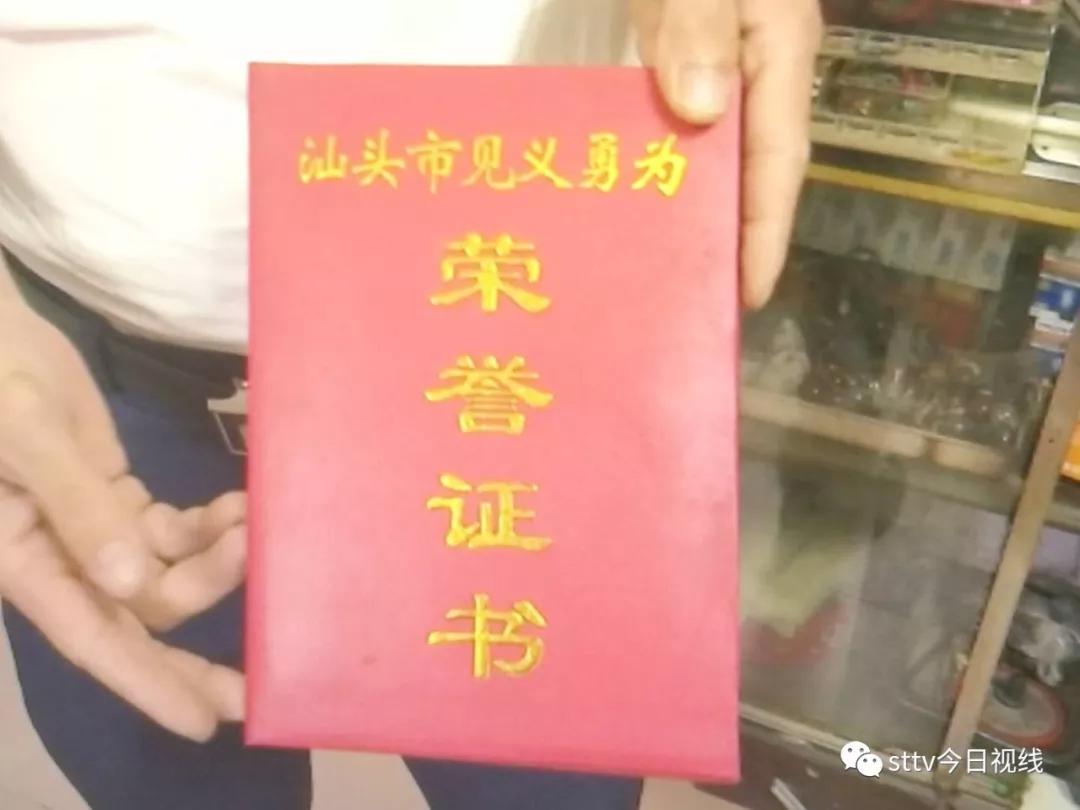 汕头市见义勇为
荣
誉
证
书
sttv今日视线